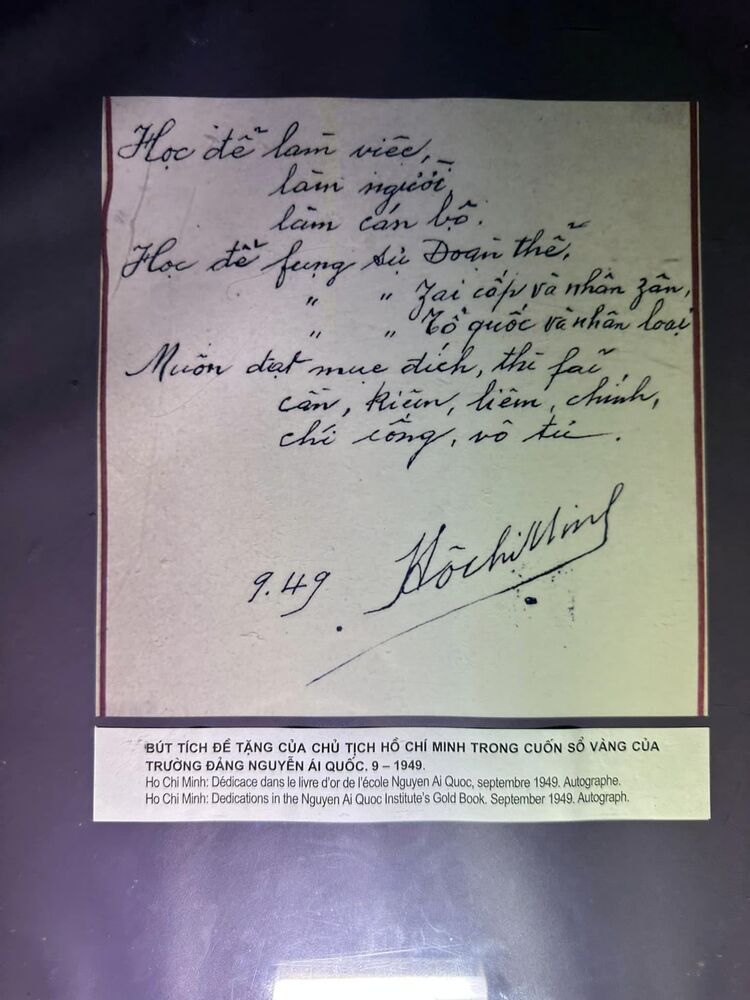 Học để làm việc,
làm người,
làm cán bộ.
Học để fụng sự Đoàn thể,
" " zai cấp và nhân zân,
" " Tổ quốc và nhân loại
Muốn đạt mục đích, thì fải
cần, kiệm, liêm, chính,
chí công, vô tư.
9.49 HồchíMinh
BÚT TÍCH ĐỀ TẶNG CỦA CHỦ TỊCH HỒ CHÍ MINH TRONG CUỐN SỔ VÀNG CỦA
TRƯỜNG ĐẢNG NGUYỄN ÁI QUỐC, 9 – 1949.
Ho Chi Minh: Dédicace dans le livre d'or de l'école Nguyen Ai Quoc, septembre 1949. Autographe.
Ho Chi Minh: Dedications in the Nguyen Ai Quoc Institute's Gold Book. September 1949. Autograph.